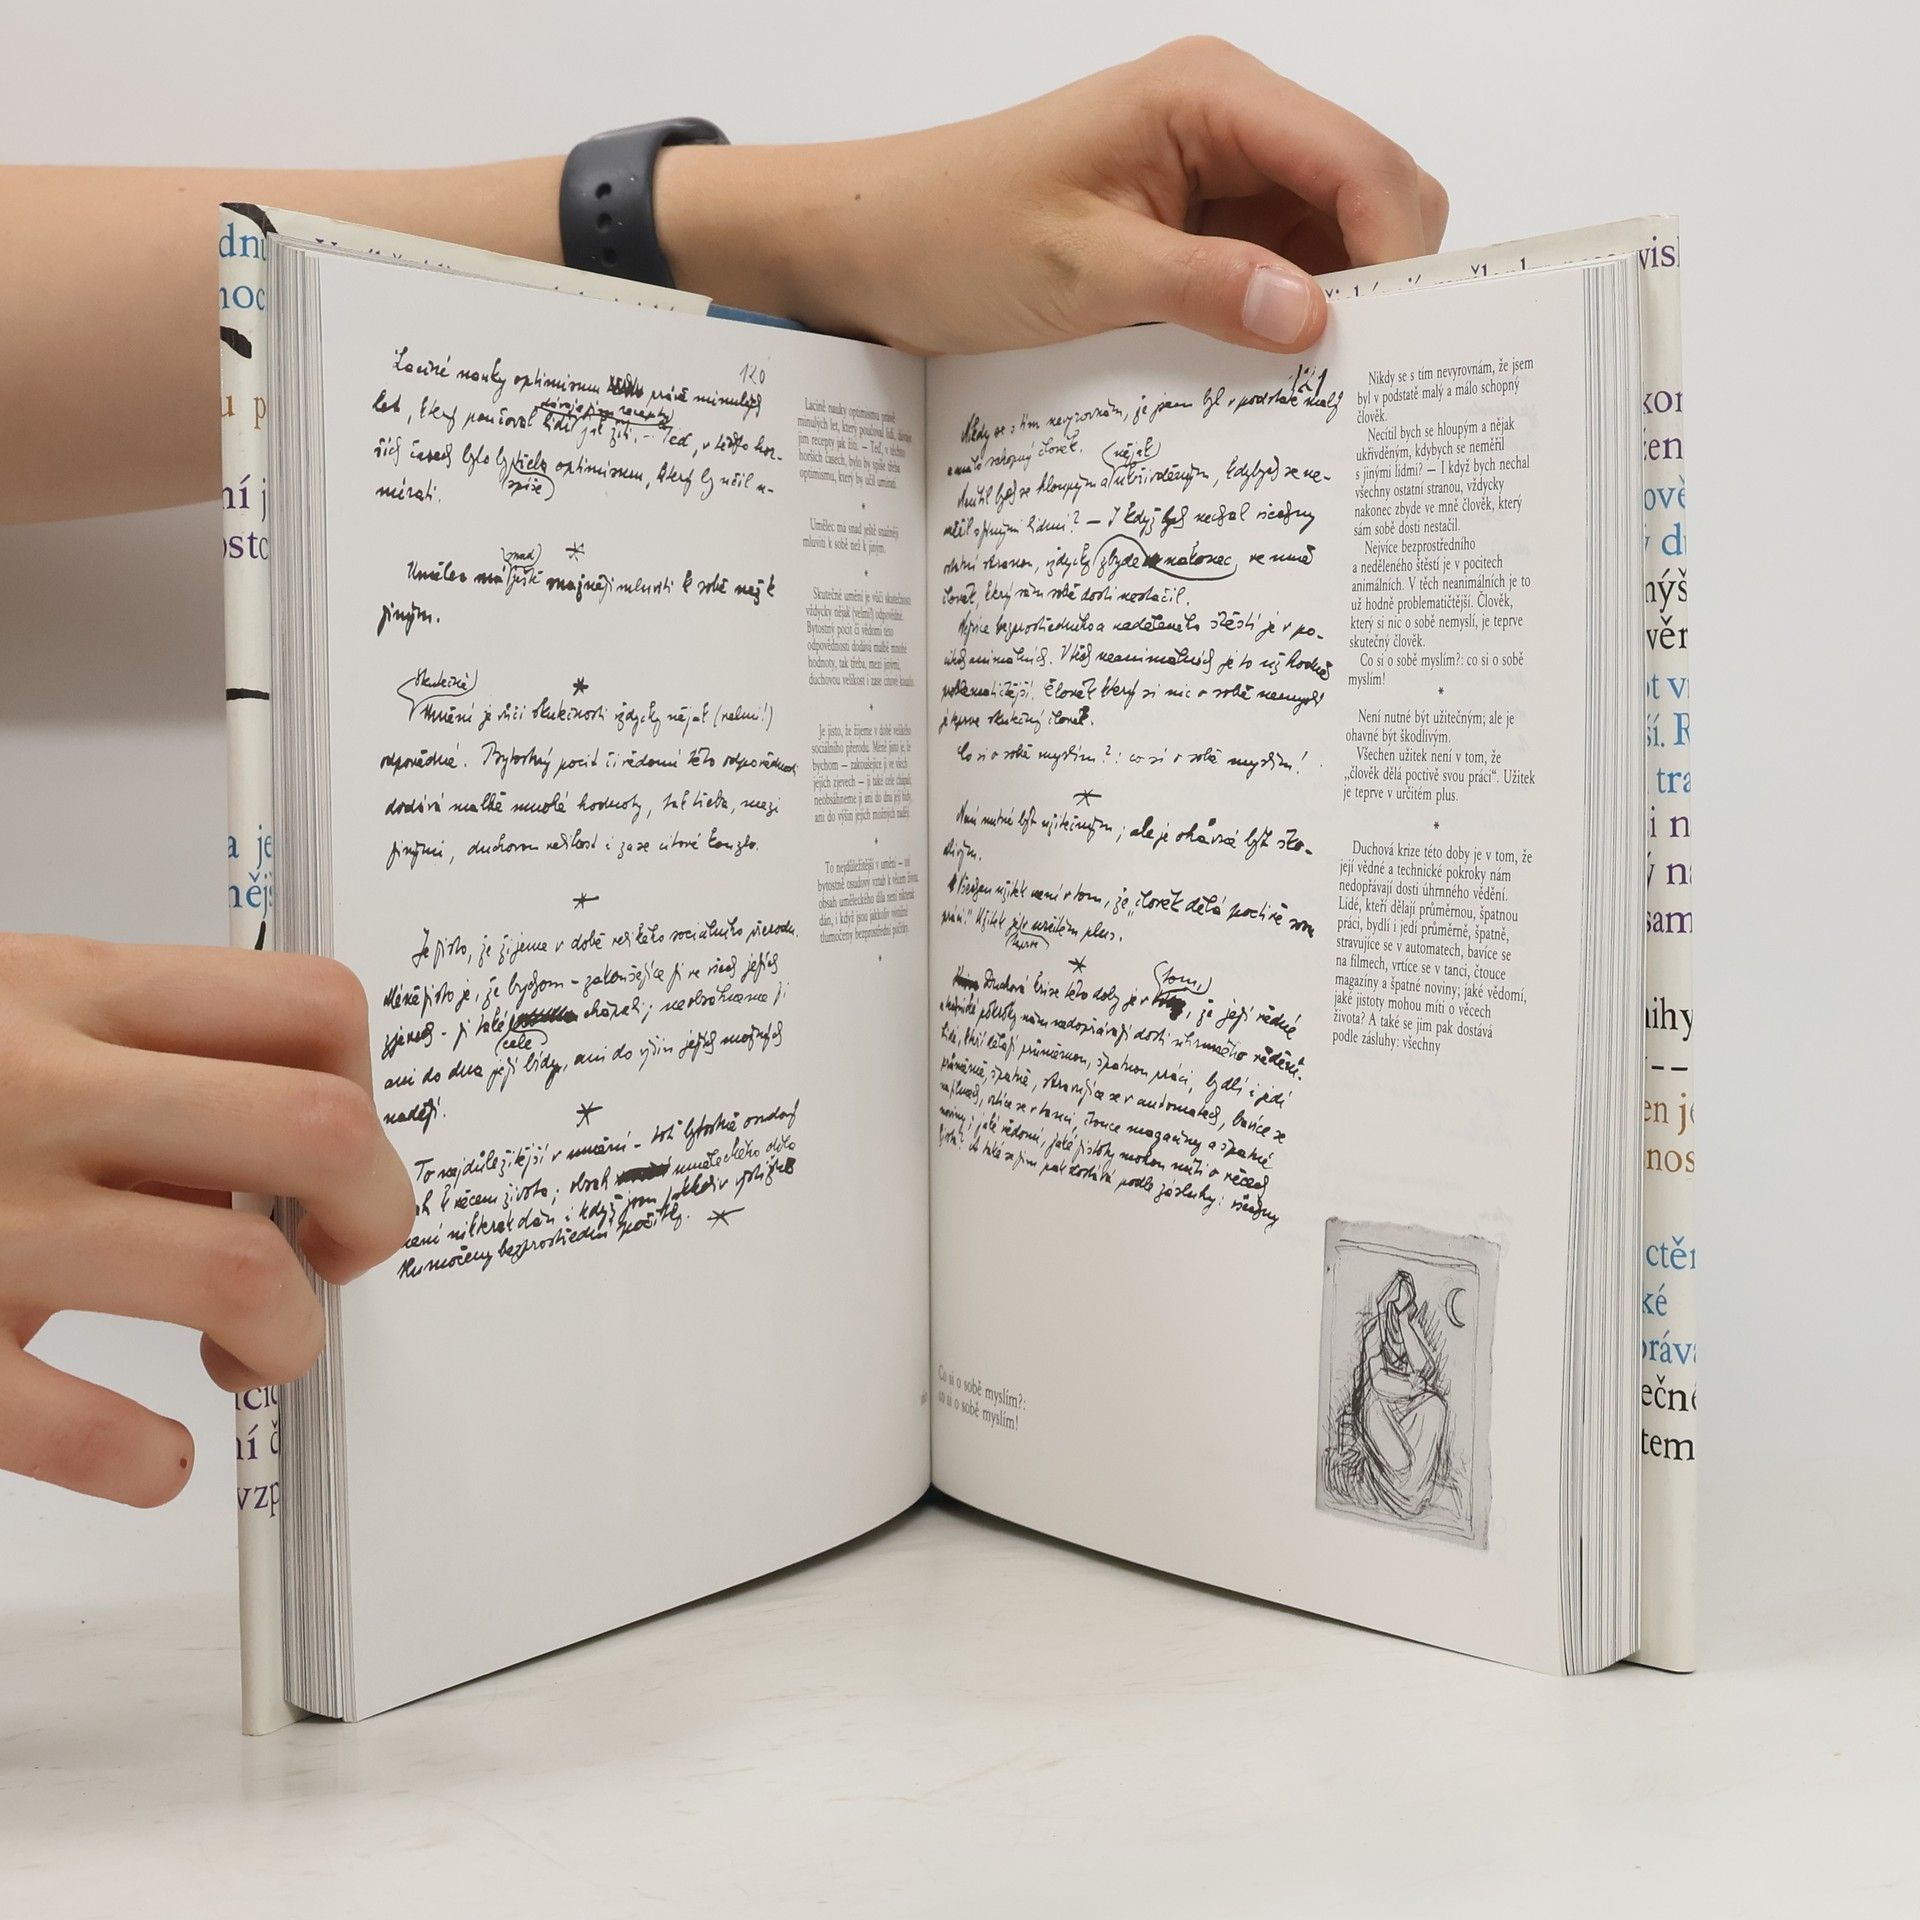 120
Laciné nauky optimismu právě minulých
let, který poučoval lidi, dávaje jim recepty jak žíti. – Teď, v těchto hor-
ších časech bylo by spíše třeba optimismu, který by učil u-
mírati.
*
Umělec má snad ještě snažněji mluviti k sobě než k
jiným.
*
Skutečné
umění je vůči skutečnosti vždycky nějak (velmi!)
odpovědné. Bytostný pocit či vědomí této odpovědnosti
dodává malbě mnohé hodnoty, tak třeba, mezi
jinými, duchovou velikost i zase citové kouzlo.
*
Je jisto, že žijeme v době velikého sociálního přerodu.
Méně jisto je, že bychom – zakoušejíce ji ve všech jejích
zjevech – ji také cele chápali; neobsáhneme ji
ani do dna její bídy, ani do výšin jejích možných
nadějí.
*
To nejdůležitější v umění – toť bytostně osudový
k věcem života; obsah uměleckého díla
není nikterak dán, i když jsou jakkoliv výstižně
tlumočeny bezprostřední počitky.
*
Laciné nauky optimismu právě
minulých let, který poučoval lidi, dávaje
jim recepty jak žíti. — Teď, v těchto
horších časech, bylo by spíše třeba
optimismu, který by učil umírati.
*
Umělec má snad ještě snažněji
mluviti k sobě než k jiným.
*
Skutečné umění je vůči skutečnosti
vždycky nějak (velmi!) odpovědné.
Bytostný pocit či vědomí této
odpovědnosti dodává malbě mnohé
hodnoty, tak třeba, mezi jinými,
duchovou velikost i zase citové kouzlo.
*
Je jisto, že žijeme v době velikého
sociálního přerodu. Méně jisto je, že
bychom — zakoušejíce ji ve všech
jejích zjevech — ji také cele chápali,
neobsáhneme ji ani do dna její bídy,
ani do výšin jejích možných nadějí.
*
To nejdůležitější v umění — toť
bytostně osudový vztah k věcem života;
obsah uměleckého díla není nikterak
dán, i když jsou jakkoliv výstižně
tlumočeny bezprostřední počitky.
*
121
Nikdy se s tím nevyrovnám, že jsem byl v podstatě malý
a málo schopný člověk.
Necítil bych se hloupým a nějak ukřivděným, kdybych se ne-
měřil s jinými lidmi? – I když bych nechal všechny
ostatní stranou, vždycky zbyde nakonec, ve mně
člověk, který sám sobě dosti nestačil.
Nejvíce bezprostředního a neděleného štěstí je v po-
citech animálních. V těch neanimálních je to už hodně
problematičtější. Člověk který si nic o sobě nemyslí
je teprve skutečný člověk.
Co si o sobě myslím?: co si o sobě myslím!
*
Není nutné být užitečným; ale je ohavné být ško-
divým.
Všechen užitek není v tom, že „člověk dělá poctivě svou
práci.“ Užitek je teprve v určitém plus.
*
Duchová krise této doby je v tom, že její vědné
a technické pokroky nám nedopřávají dosti úhrnného vědění.
Lidé, kteří dělají průměrnou, špatnou práci, bydlí i jedí
průměrně, špatně, stravujíce se v automatech, bavíce se
na filmech, vrtíce se v tanci, čtouce magaziny a špatné
noviny; jaké vědomí, jaké jistoty mohou míti o věcech
života? A také se jim pak dostává podle zásluhy: všechny
Nikdy se s tím nevyrovnám, že jsem
byl v podstatě malý a málo schopný
člověk.
Necítil bych se hloupým a nějak
ukřivděným, kdybych se neměřil
s jinými lidmi? — I když bych nechal
všechny ostatní stranou, vždycky
nakonec zbyde ve mně člověk, který
sám sobě dosti nestačil.
Nejvíce bezprostředního
a neděleného štěstí je v pocitech
animálních. V těch neanimálních je to
už hodně problematičtější. Člověk,
který si nic o sobě nemyslí, je teprve
skutečný člověk.
Co si o sobě myslím?: co si o sobě
myslím!
*
Není nutné být užitečným; ale je
ohavné být škodlivým.
Všechen užitek není v tom, že
„člověk dělá poctivě svou práci“. Užitek
je teprve v určitém plus.
*
Duchová krize této doby je v tom, že
její vědné a technické pokroky nám
nedopřávají dosti úhrnného vědění.
Lidé, kteří dělají průměrnou, špatnou
práci, bydlí i jedí průměrně, špatně,
stravujíce se v automatech, bavíce se
na filmech, vrtíce se v tanci, čtouce
magaziny a špatné noviny; jaké vědomí,
jaké jistoty mohou míti o věcech
života? A také se jim pak dostává
podle zásluhy: všechny
Co si o sobě myslím?:
co si o sobě myslím!